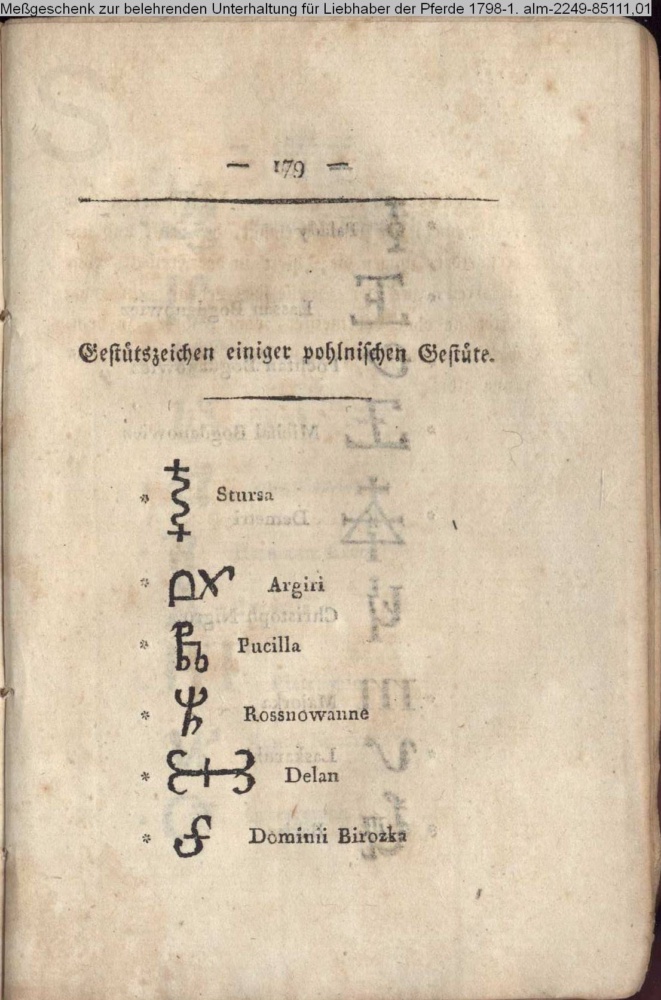 Meßgeschenk zur belehrenden Unterhaltung für Liebhaber der Pferde 1798-1. alm-2249-85111,01
— 179 —
Gestütszeichen einiger pohlnischen Gestüte.
* Stursa
* Argiri
* Pucilla
* Rossnowanne
* Delan
* Dominii Birozka